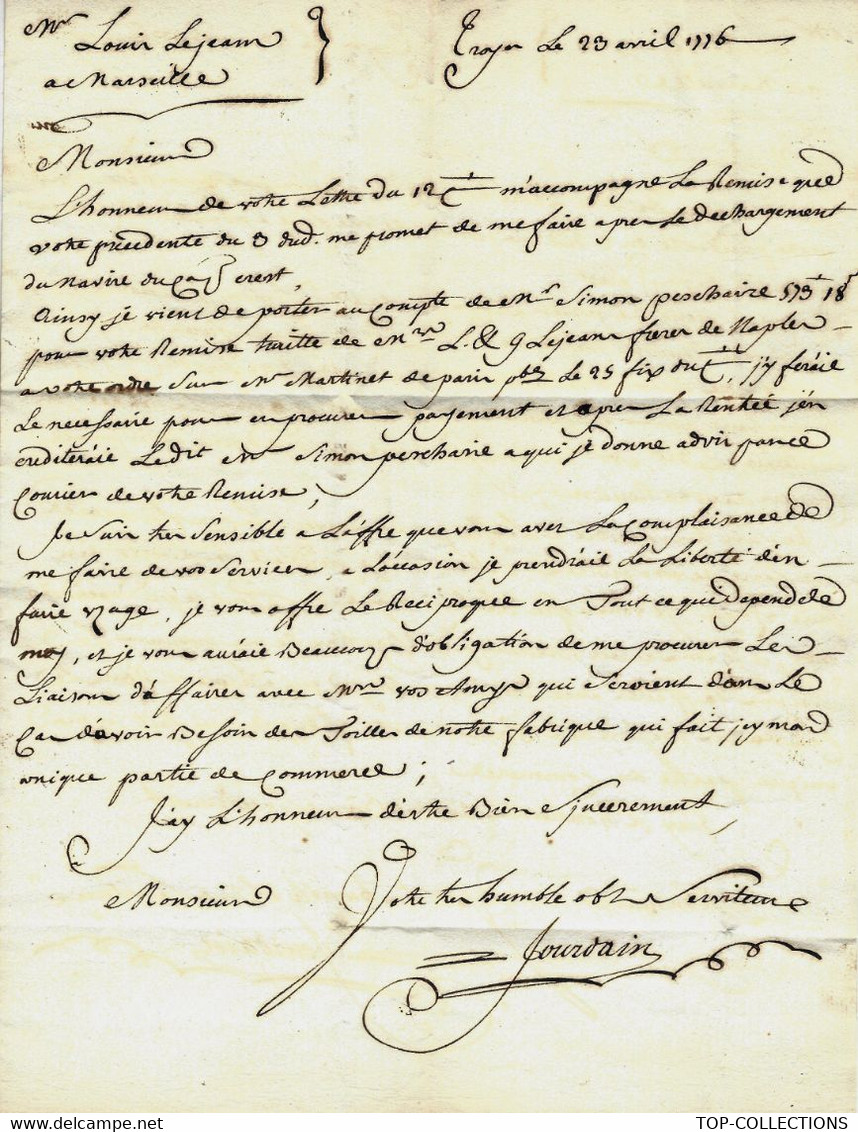 Mr Louis Lejeans
a Marseille
Troyes Le 23 avril 1776
Monsieur
L'honneur de votre Lettre du 12 Ct m'accompagne La Remise que
votre précédente du 3 dud. me promet de me faire apres Le dechargement
du Navire du Cap
Ainsy je vient de porter au Compte de Mr Simon peschaire 573 18
pour votre Remise traitte de Mrs L. & G Lejeans freres de Naples
a votre ordre Sur Mr Martinet de paris Le 25 fix du Ct, j'y feraie
Le necessaire pour en procurer payement et apres La Rentrée j'en
crediteraie Ledit Mr Simon peschaire a qui je donne advis par ce
Courier de votre Remise;
Je suis tres Sensible a L'offre que vous avez La Complaisance de
me faire de vos Services, a L'occasion je prendraie La Liberté d'en
faire Uzage, je vous offre Le Reciproque en Tout ce qui depend de
moy, et je vous auraie Beaucoup d'obligation de me procurer Les
Liaisons d'affaires avec Mrs vos Amys qui Seroient dans Le
Cas d'avoir Besoin des Toilles de notre fabrique qui fait jcy mon
unique partie de Commerce;
J'ay L'honneur d'estre Bien Sincerement
Monsieur
Votre tres humble obt Serviteur
Jourdain
TOP-COLLECTIONS